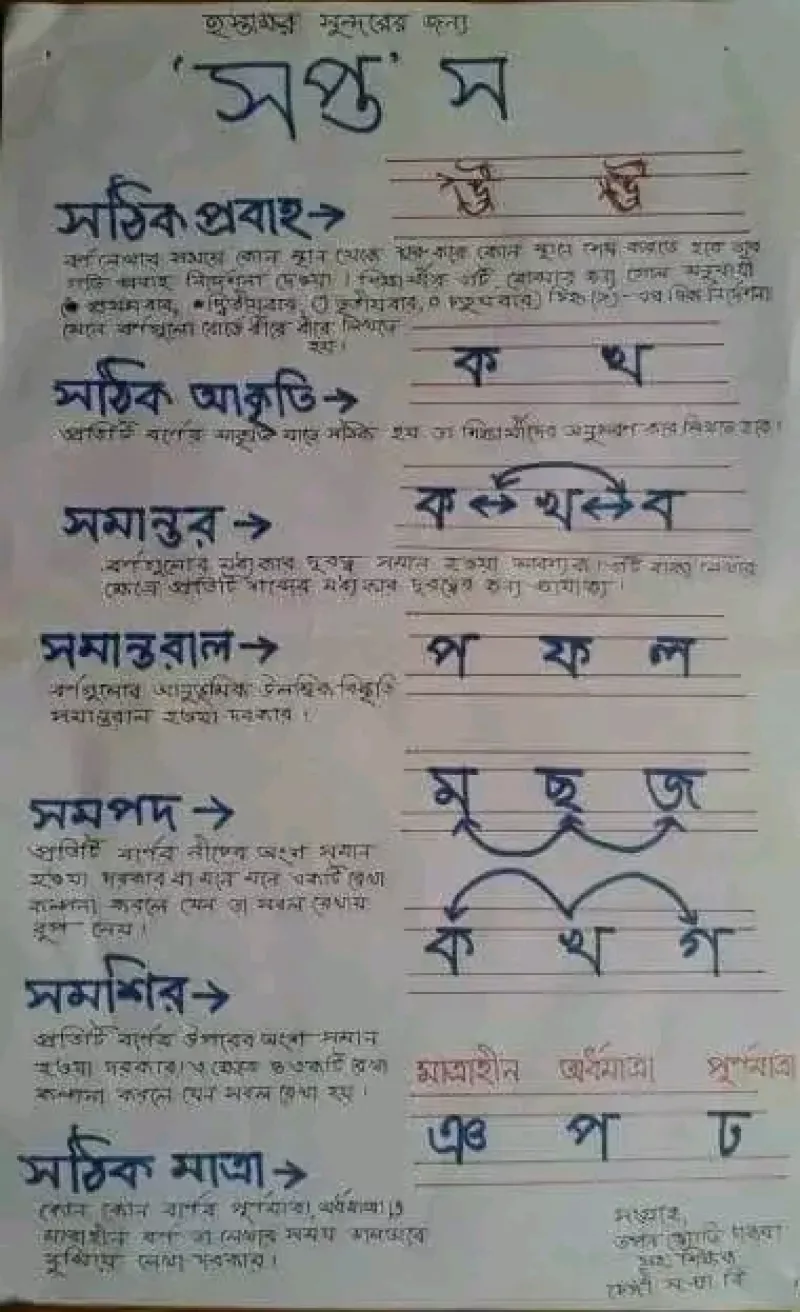 হস্তাক্ষর সুন্দরের জন্য
'সপ্ত' স
সঠিক প্রবাহ→
উ উ
বর্ণ লেখার সময়ে কোন স্থান থেকে শুরু করে কোন স্থানে শেষ করতে হবে তার
প্রবাহ নির্দেশনা দেওয়া। শিক্ষার্থীর এটি বোঝার জন্য গোল অনুযায়ী
(● প্রথমবার, ● দ্বিতীয়বার, ○ তৃতীয়বার, ০ চতুর্থবার) চিহ্ন (→)-এর দিক নির্দেশনা
মেনে বর্ণগুলো বোর্ডে ধীরে ধীরে লিখতে
হয়।
ক খ
সঠিক আকৃতি→
প্রতিটি বর্ণের আকৃতি যাতে সঠিক হয় তা শিক্ষার্থীদের অনুসরণ করে লিখতে হবে।
সমান্তর →
ক ↔ খ ↔ ব
বর্ণগুলোর মধ্যকার দূরত্ব সমান হওয়া আবশ্যক। এটি বাক্য লেখার
ক্ষেত্রে প্রতিটি শব্দের মধ্যকার দূরত্বের জন্য প্রযোজ্য।
সমান্তরাল→
প ফ ল
বর্ণগুলোর আনুভূমিক উলম্বিক বিস্তৃতি
সমান্তরাল হওয়া দরকার।
সমপদ →
মূ ছ জ
প্রতিটি বর্ণের নীচের অংশ সমান
হওয়া দরকার যা মনে মনে একটি রেখা
কল্পনা করলে যেন তা সরল রেখায়
রূপ নেয়।
ক খ গ
সমশির→
প্রতিটি বর্ণের উপরের অংশ সমান
হওয়া দরকার। এ ক্ষেত্রে ও একটি রেখা
কল্পনা করলে যেন সরল রেখা হয়।
মাত্রাহীন অর্ধমাত্রা পূর্ণমাত্রা
ঞ প ঢ
সঠিক মাত্রা→
কোন কোন বর্ণের পূর্ণমাত্রা, অর্ধমাত্রা ও
মাত্রাহীন বর্ণ তা লেখার সময় ভালভাবে
বুঝিয়ে লেখা দরকার।
তপন জ্যোতি
সহঃ শিক্ষক